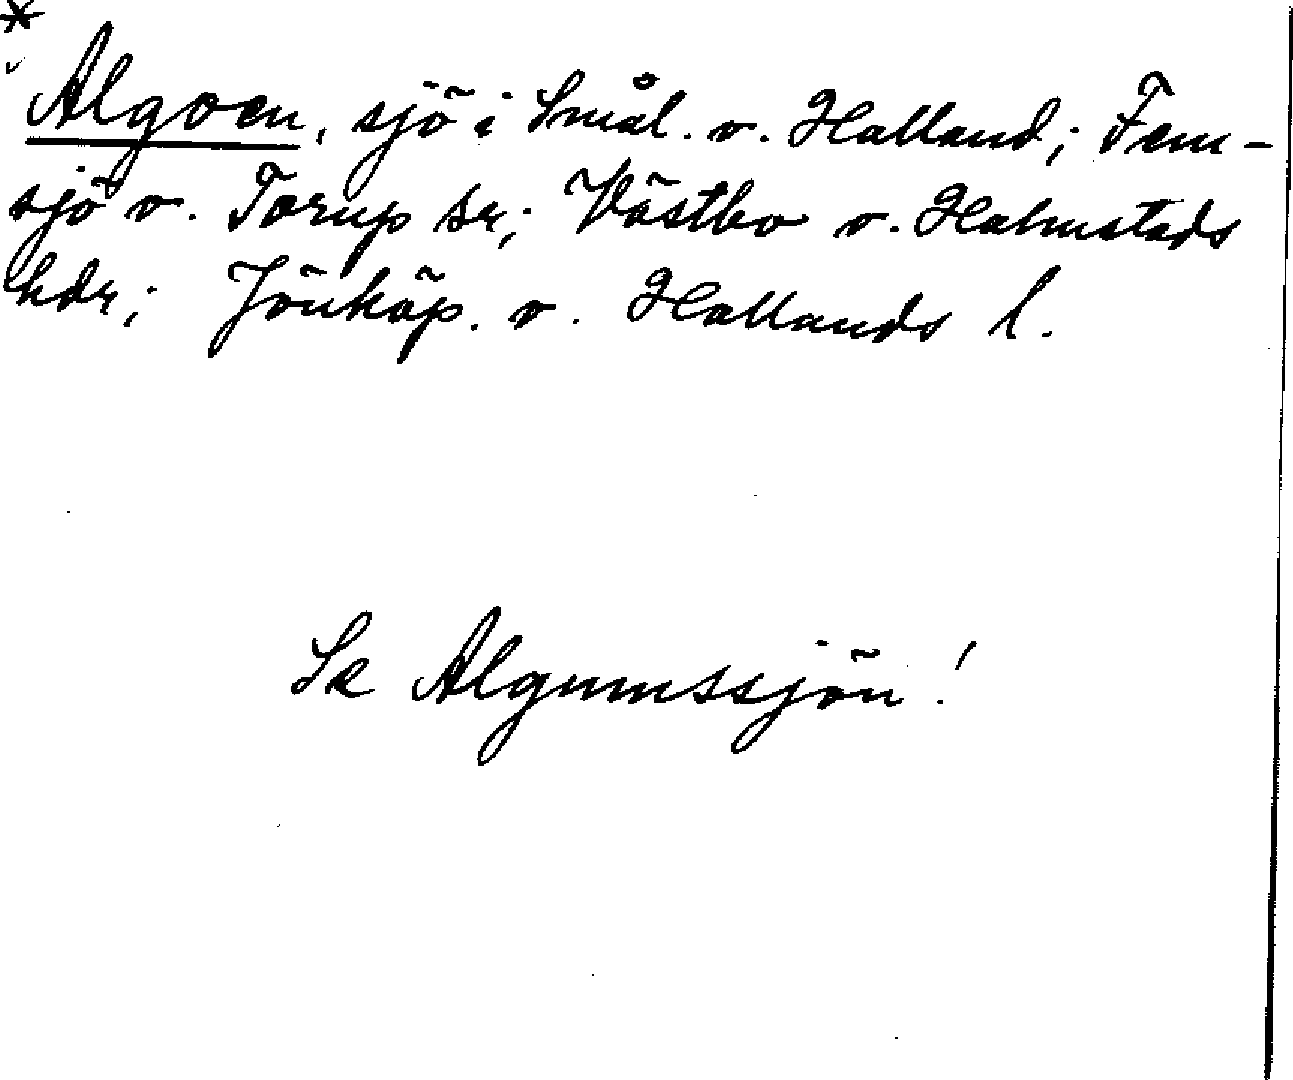 *
Algoen, sjö i Smål. o. Halland; Fem-
sjö o. Torup sr; Västbo o. Halmstads
hdr; Jönköp. o. Hallands l.
Se Algunnssjön!